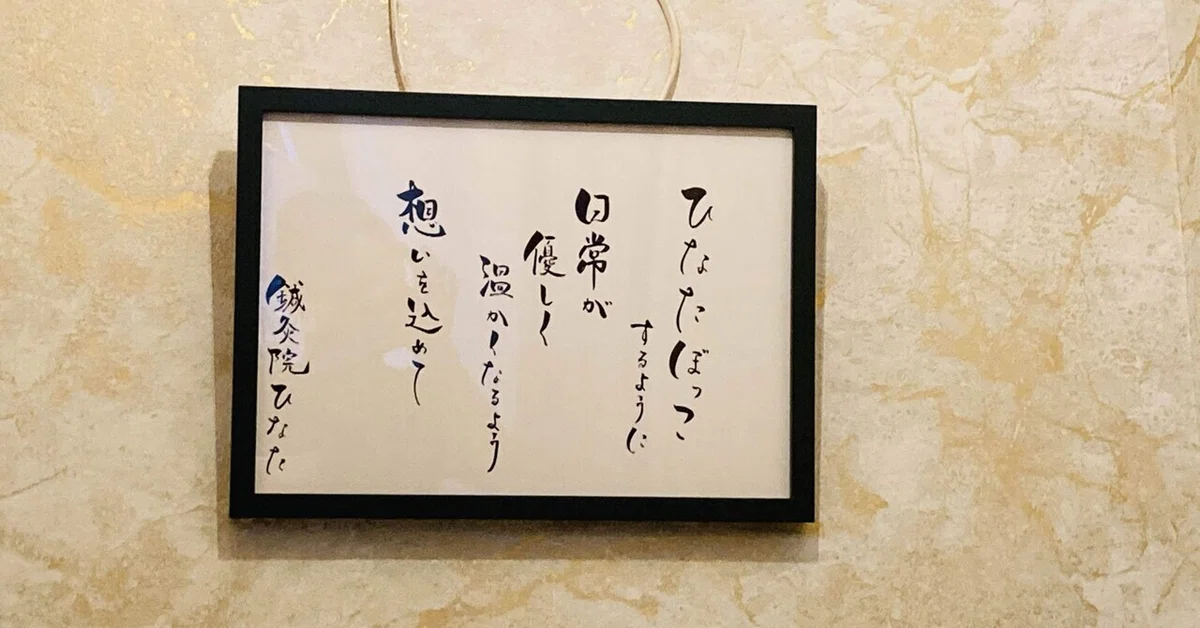 ひなたぼっこ
するように
日常が
優しく
温かくなるよう
想いを込めて
鍼灸院ひなた